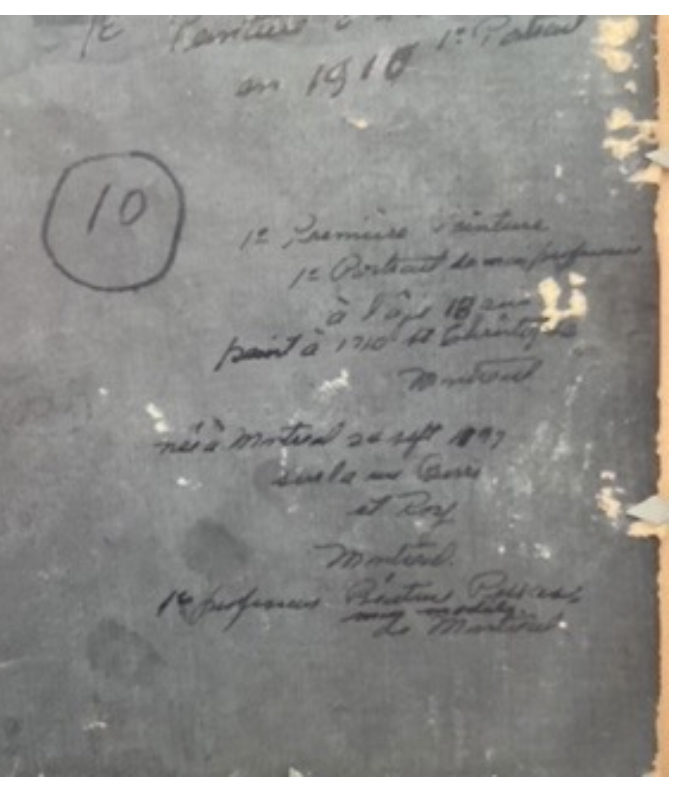 1e Peinture 1e Portrait
en 1916
10
1e Première Peinture
1e Portrait de mon professeur
à l'âge 18 ans
peint à 1710 St Christophe
Montreal
née à Montreal 24 sept 1897
sur la rue Berri
et Roy
Montreal.
1e professeur Peinture
mon modèle
de Montreal